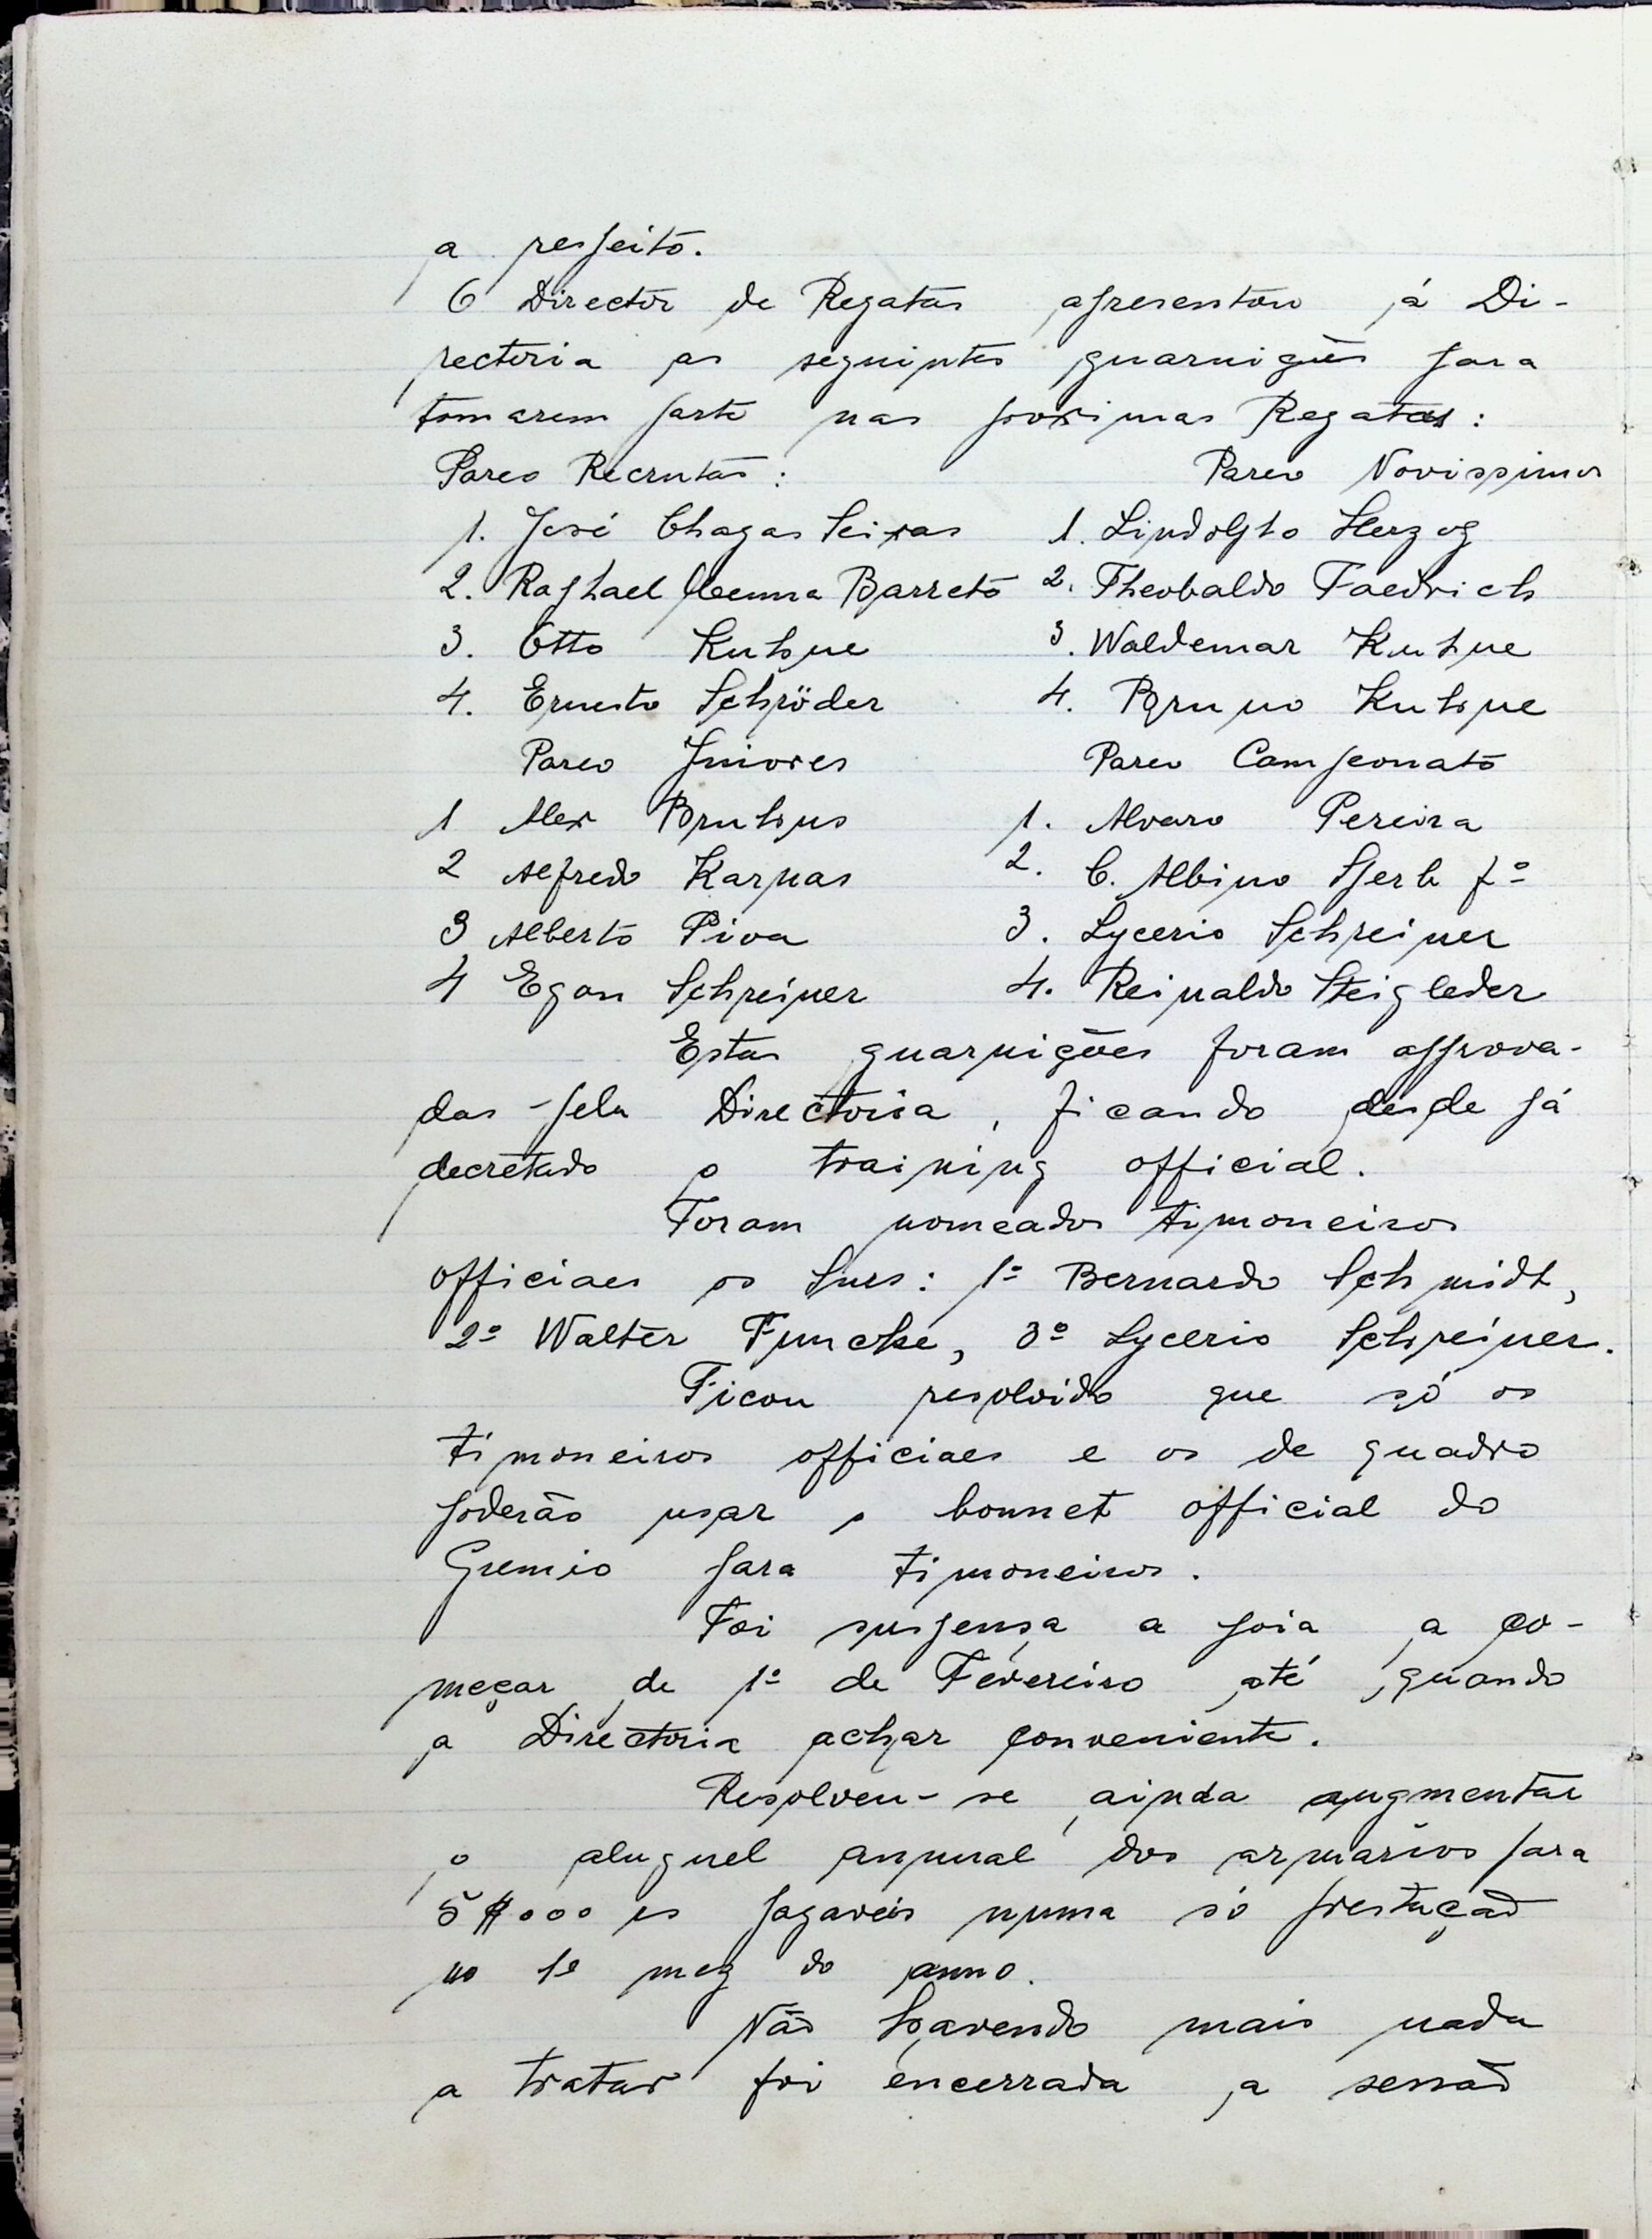 a respeito.
O Director de Regatas apresentou á Di-
rectoria as seguintes guarnigões para
tomarem parte nas proximas Regatas:
Pareo Recrutas: Pareo Novissimos
1. José Chagas Seixas 1. Lindolpho Herzog
2. Raphael Menna Barreto 2. Theobaldo Faedrich
3. Otto Kuhne 3. Waldemar Kuhne
4. Ernesto Schröder 4. Bruno Kuhne
Pareo Juniores Pareo Campeonato
1 Alex Bruhns 1. Alvaro Pereira
2 Alfredo Karnas 2. C. Albino Sperb fº
3 Alberto Piva 3. Lycerio Schreiner
4 Egon Schreiner 4. Reinaldo Steigleder
Estas guarnições foram approva-
das pela Directoria, ficando desde já
decretado o training official.
Foram nomeados timoneiros
officiaes os Snrs: 1º Bernardo Schmidt,
2º Walter Funcke, 3º Lycerio Schreiner.
Ficou resolvido que só os
timoneiros officiaes e os de quadro
poderão usar o bonnet official do
Gremio para timoneiros.
Foi suspensa a joia a co-
meçar de 1º de Fevereiro até quando
a Directoria achar conveniente.
Resolveu-se ainda augmentar
o aluguel annual dos armarios para
5$000 rs pagaveis numa só prestação
no 1º mez do anno.
Não havendo mais nada
a tratar foi encerrada a sessão